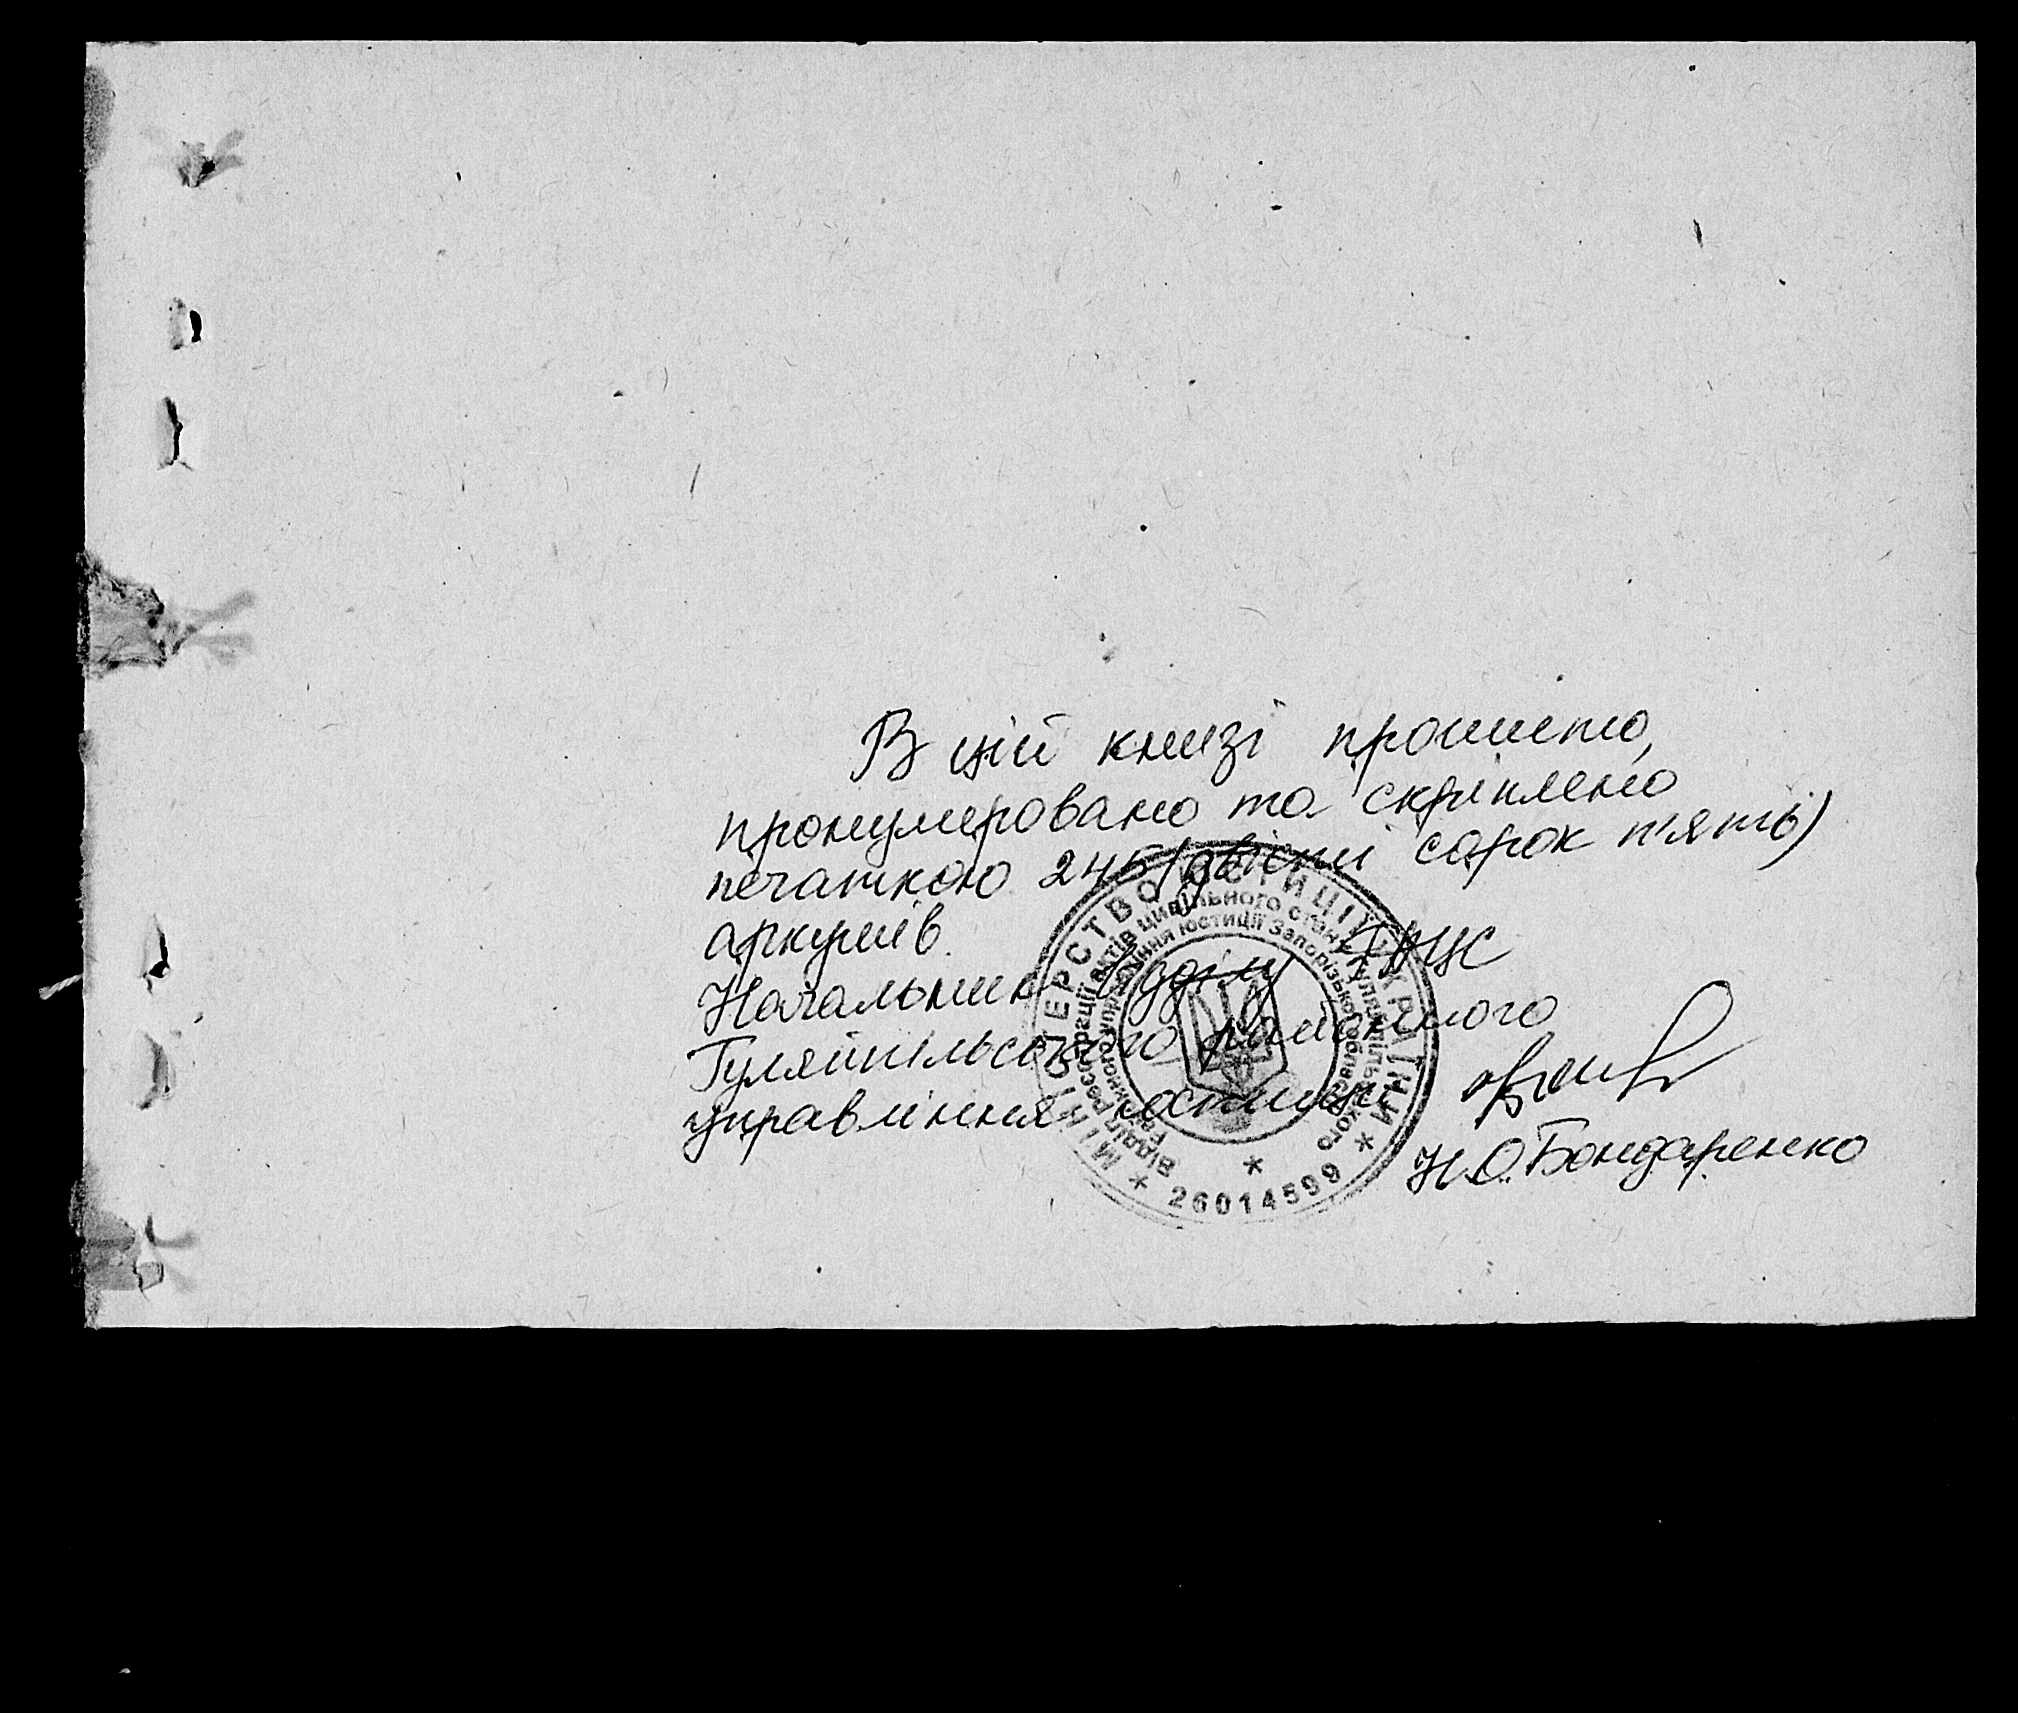 В цій книзі прошито,
пронумеровано та скріплено
печаткою 245 (двісті сорок п'ять)
аркушів.
Начальник відділу РАЦС
Гуляйпільського районного
управління юстиції
Н.О. Бондаренко
МІНІСТЕРСТВО ЮСТИЦІЇ УКРАЇНИ * 26014599 *
Відділ реєстрації актів цивільного стану Гуляйпільського
районного управління юстиції Запорізької області